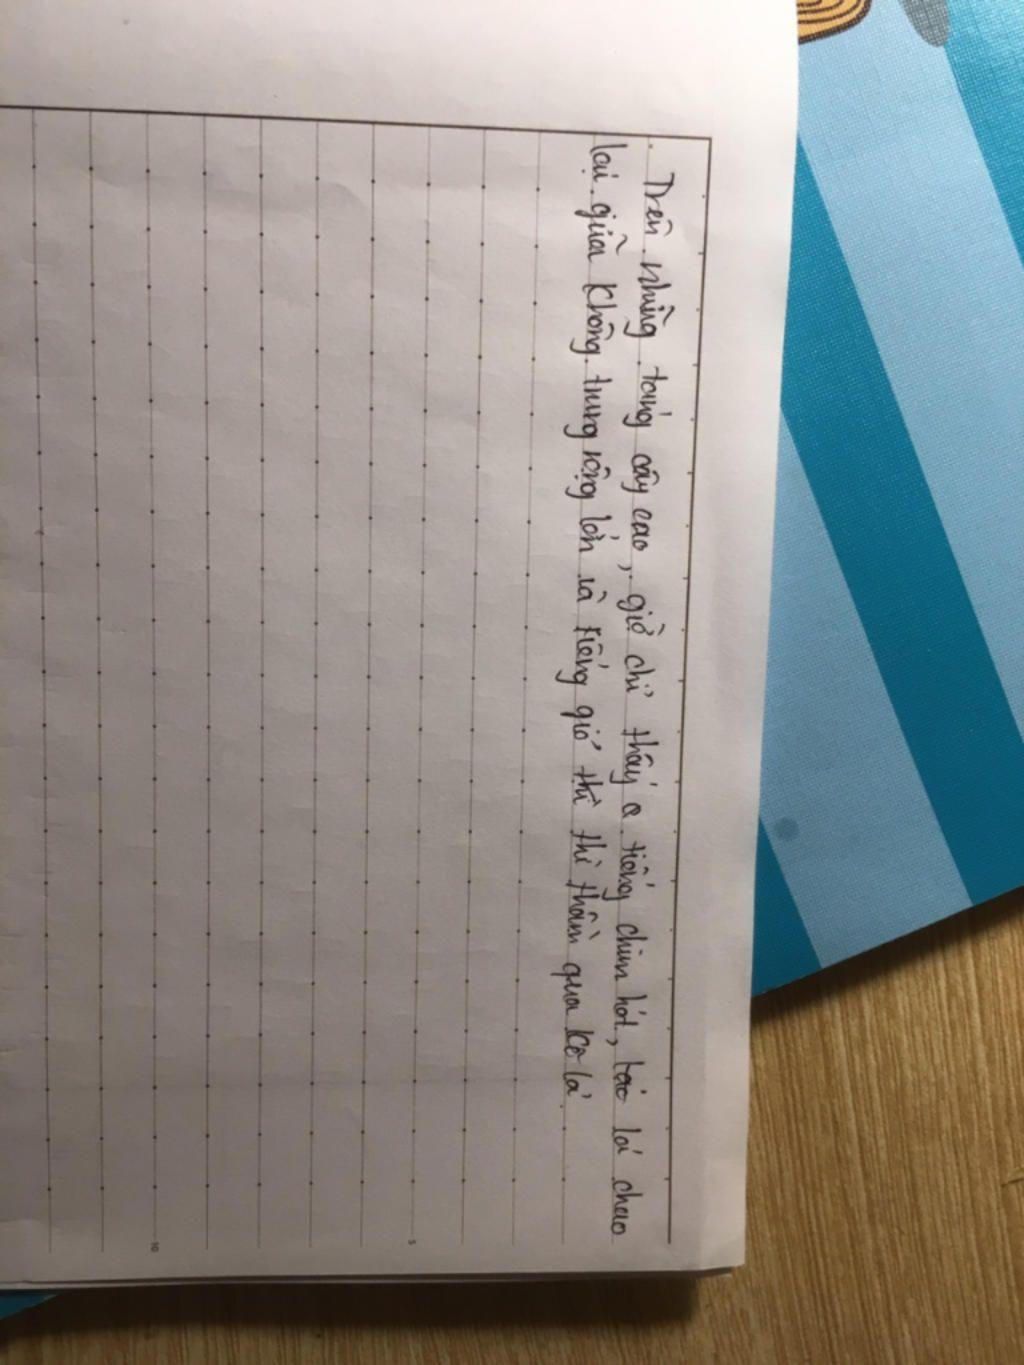 Trên những táng cây cao, giờ chỉ thấy ạ tiếng chim hót, táo lá chao
lại giữa không trung rộng lớn và tiếng gió thì thì thầm qua kẽ lá
5
10